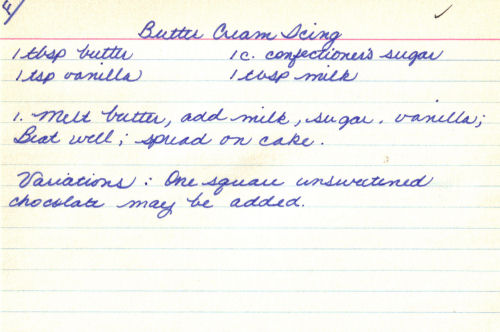 Butter Cream Icing
1 tbsp butter 1 c. confectioner's sugar
1 tsp vanilla 1 tbsp milk
1. Melt butter, add milk, sugar, vanilla;
Beat well; spread on cake.
Variations: One square unsweetened
chocolate may be added.